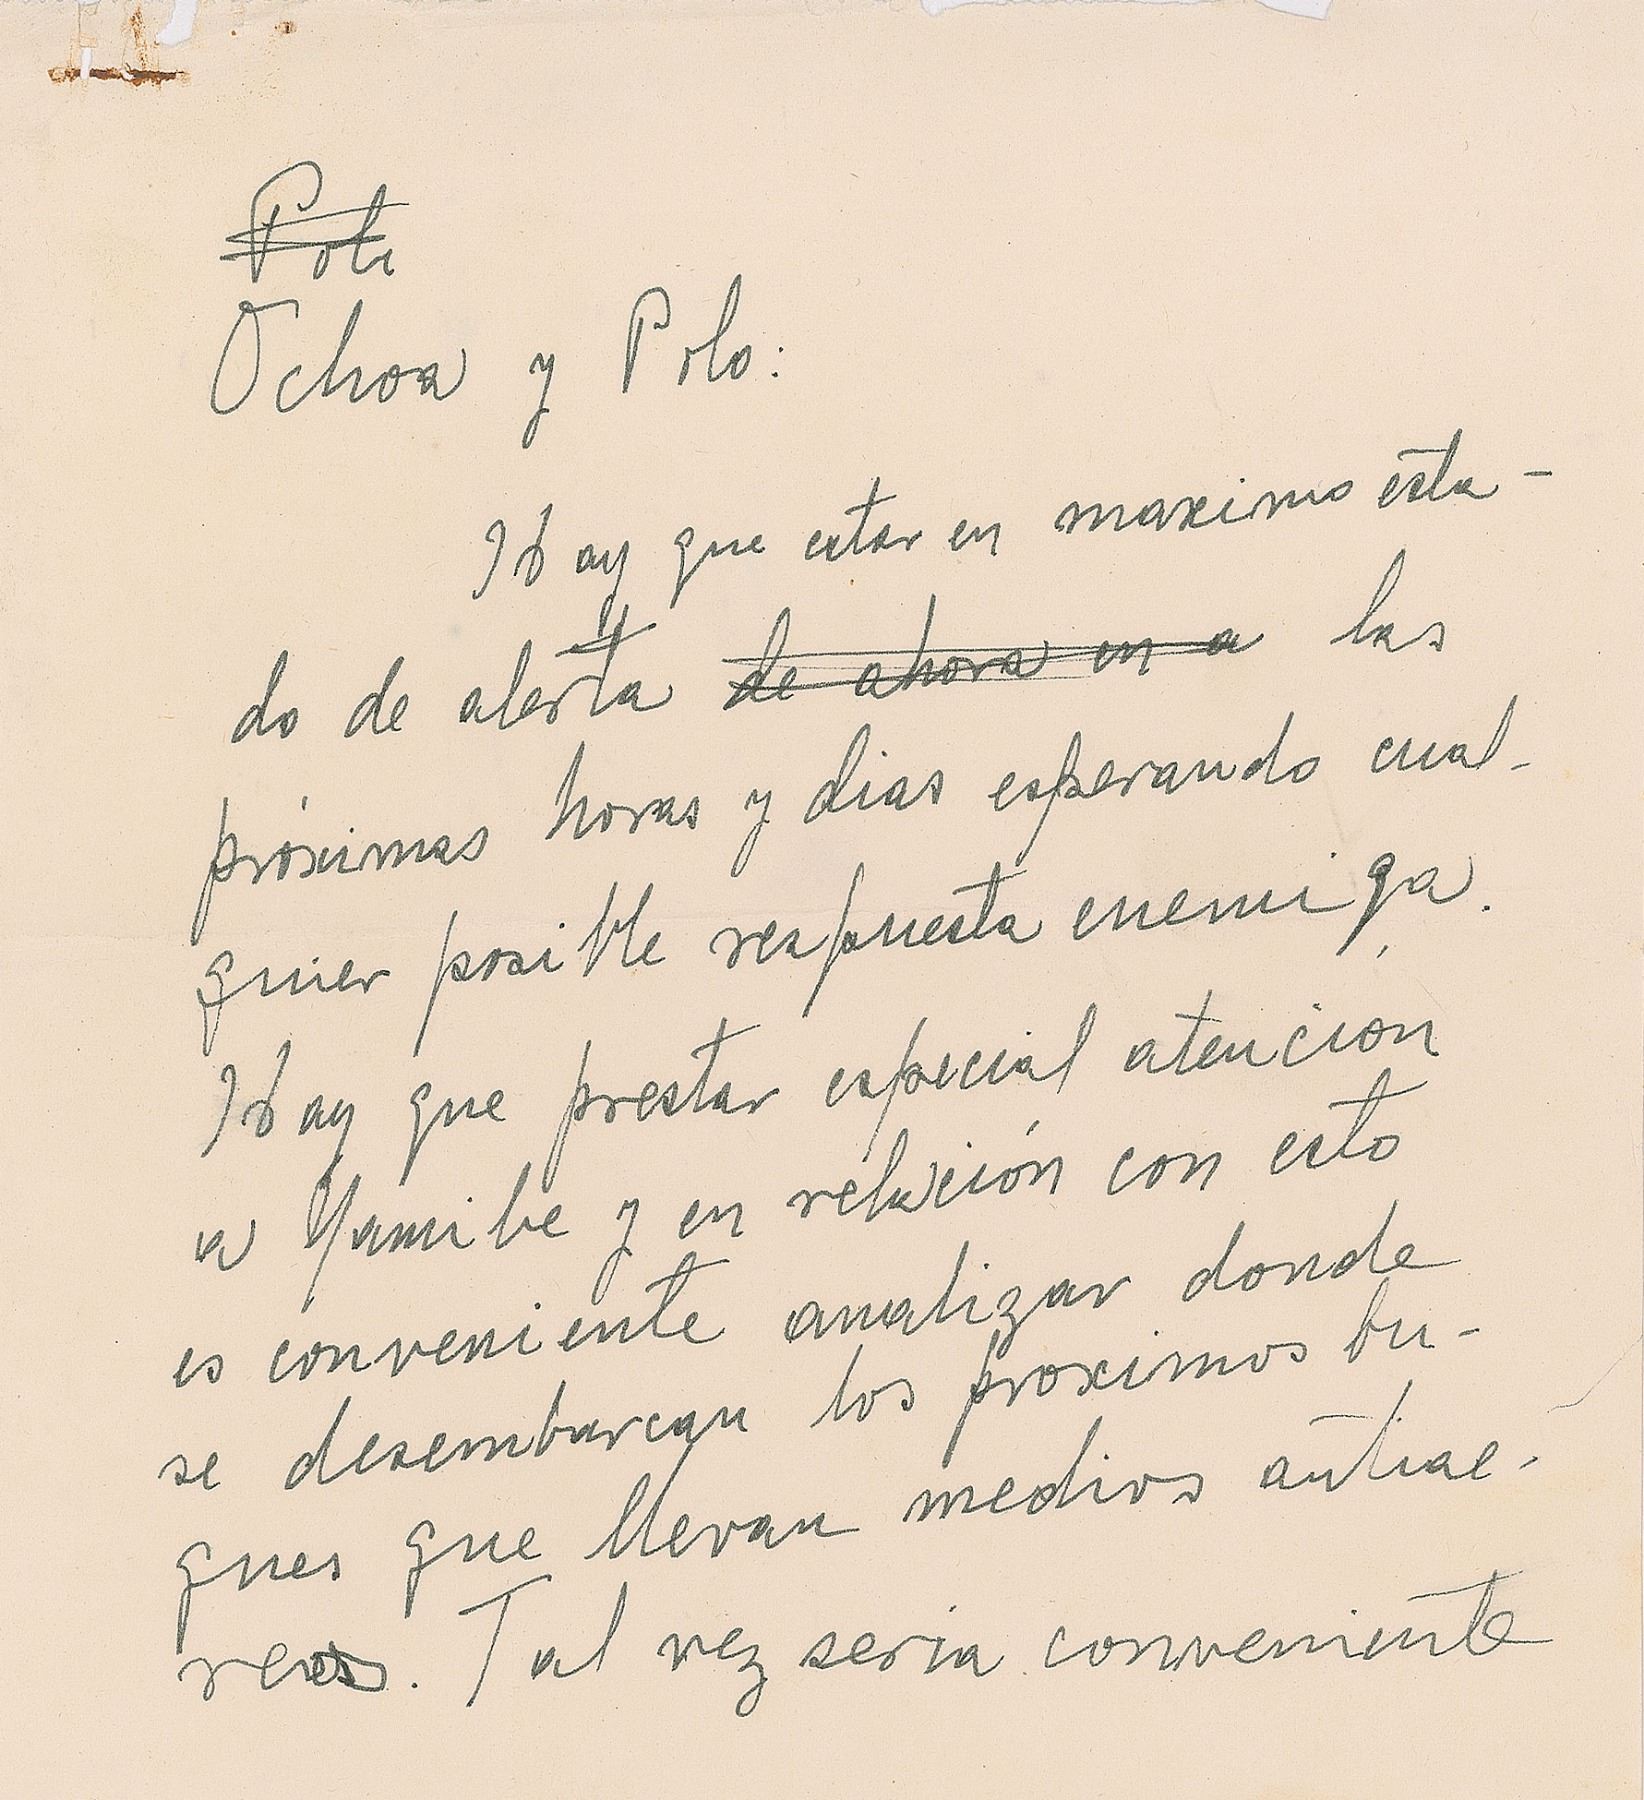 Polo
Ochoa y Polo:
Hay que estar en maximo esta-
do de alerta de ahora en a las
próximas horas y dias esperando cual-
quier posible respuesta enemiga.
Hay que prestar especial atención
a Yamibe y en relación con esto
es conveniente analizar donde
se desembarcan los proximos bu-
ques que llevan medios antiae-
reos. Tal vez seria conveniente